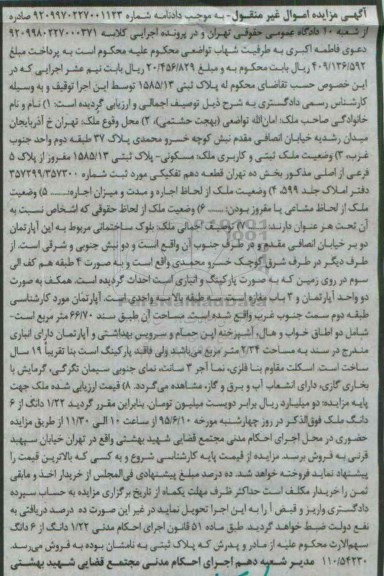 آگهی مزایده اموال غیر منقول- به موجب دادنامه شماره ۹۲۰۹۹۷۰۲۲۷۰۰۱۱۲۳ صادره
از شعبه ۱۰ دادگاه عمومی حقوقی تهران و در پرونده اجرایی کلاسه ۹۲۰۹۹۸۰۲۲۷۰۰۰۳۷۱
دعوی فاطمه اکبری به طرفیت شهاب تواضعی محکوم علیه محکوم است به پرداخت مبلغ
۴۰۹/۱۳۶/۵۹۲ ریال بابت محکوم به و مبلغ ۲۰/۴۵۶/۸۲۹ ریال بابت نیم عشر اجرایی که در
این خصوص حسب تقاضای محکوم له پلاک ثبتی ۱۵۸۵/۱۳ توسط این اجرا توقیف و به وسیله
کارشناس رسمی دادگستری به شرح ذیل توصیف اجمالی و ارزیابی گردیده است: ۱) نام و نام
خانوادگی صاحب ملک: امان‌الله تواضعی (بهجت حشمتی)، ۲) محل وقوع ملک: تهران خ آذربایجان
میدان رشدیه خیابان انصافی مقدم نبش کوچه خسرو محمدی پلاک ۳۷ طبقه دوم واحد جنوب
غرب، ۳) وضعیت ملک ثبتی و کاربری ملک: مسکونی- پلاک ثبتی ۱۵۸۵/۱۳ مفروز از پلاک ۵
فرعی از اصلی مذکور بخش ده تهران قطعه دهم تفکیکی مورد ثبت شماره ۳۵۷۲۹۹/۳۵۷۳۰۰
دفتر املاک جلد ۵۹۹، ۴) وضعیت ملک از لحاظ اجاره و مدت و میزان اجاره:....... ۵) وضعیت
ملک از لحاظ مشاعی یا مفروز بودن:...... ۶) وضعیت ملک از لحاظ حقوقی که اشخاص نسبت به
آن تحت هر عنوان دارند: اجمالی ملک: بلوک ساختمانی مربوط به این آپارتمان
دو بر خیابان انصافی مقدم و در طرف جنوب آن واقع است و دو نبش جنوبی و شرقی است. از
طرف دیگر در طرف شرق کوچک خسرو محمدی واقع است و به صورت ۴ طبقه هم کف الی
سوم در روی زمین که به صورت پارکینگ و انباری است احداث گردیده است. همکف به صورت
دو واحد آپارتمان و ۳ باب مغازه است. سه طبقه بالا به واحدی است. آپارتمان مورد کارشناسی
طبقه دوم سمت جنوب غرب واقع شده است. مساحت آن طبق سند ۶۶/۷۰ متر مربع است.-
شامل دو اطاق خواب و هال، آشپزخانه اپن حمام و سرویس بهداشتی و آپارتمان دارای انباری
مندرج در سند به مساحت ۲/۳۴ متر مربع می‌باشد ولی فاقد پارکینگ است بنا تقریباً ۱۹ سال
ساخت است. اسکلت مقاوم بنا فلزی، نما آجر ۳ سانت، نمای جنوبی سیمان تگرگی، گرمایش با
بخاری گازی، دارای انشعاب آب و برق و گاز، مشاهده می‌گردد. ۸) قیمت ارزیابی شده ملک جهت
پایه مزایده: دو میلیارد ریال برابر دویست میلیون تومان. بنابراین مقرر گردید ۱/۲۲ دانگ از ۶
دانگ ملک فوق‌الذکر در روز چهارشنبه مورخه ۹۵/۶/۱۰ از ساعت ۱۰ الی ۱۱/۳۰ از طریق مزایده
حضوری در محل اجرای احکام مدنی مجتمع قضایی شهید بهشتی واقع در تهران خیابان سپهبد
قرنی به فروش برسد. مزایده از قیمت پایه کارشناسی شروع و به کسی که بالاترین قیمت را
پیشنهاد نماید فروخته خواهد شد. ده درصد مبلغ پیشنهادی فی‌المجلس از خریدار اخذ و مابقی
ثمن را خریدار مکلف است حداکثر ظرف مهلت یکماه از تاریخ برگزاری مزایده به حساب سپرده
دادگستری واریز و فیش آن را به این اجرا تحویل نماید در غیر این صورت ده درصد دریافتی به
نفع دولت ضبط خواهد گردید. طبق ماده ۵۱ قانون اجرای احکام مدنی ۱/۲۲ دانگ از ۶ دانگ
سهم‌الارث محکوم علیه از مادر و پدرش که پلاک ثبتی به نامشان بوده به فروش می‌رسد.
۱۱۰/۵۴۲۳۰ مدیر شعبه دهم اجرای احکام مدنی مجتمع قضایی شهید بهشتی